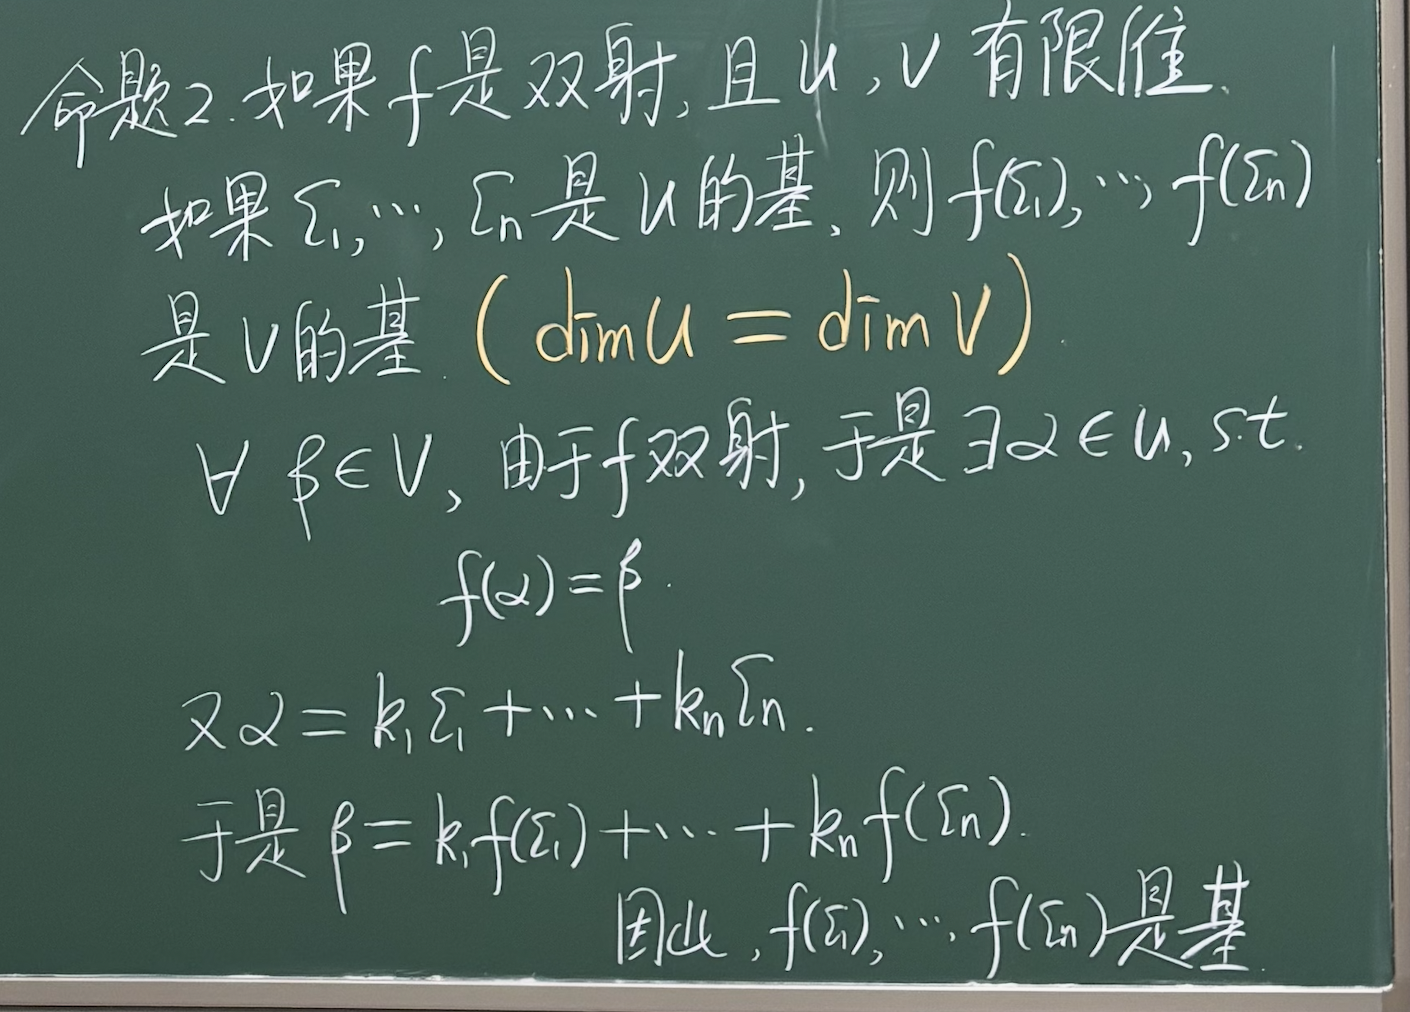 命题2. 如果f是双射, 且U, V 有限维.
如果 ξ₁, ⋯, ξn 是U的基, 则 f(ξ₁), ⋯, f(ξn)
是V的基. (dim U = dim V).
∀ β∈V, 由于f双射, 于是 ∃α∈U, s.t.
f(α)=β.
又α = k₁ξ₁ + ⋯ + knξn.
于是 β = k₁f(ξ₁) + ⋯ + knf(ξn).
因此, f(ξ₁), ⋯, f(ξn)是基.